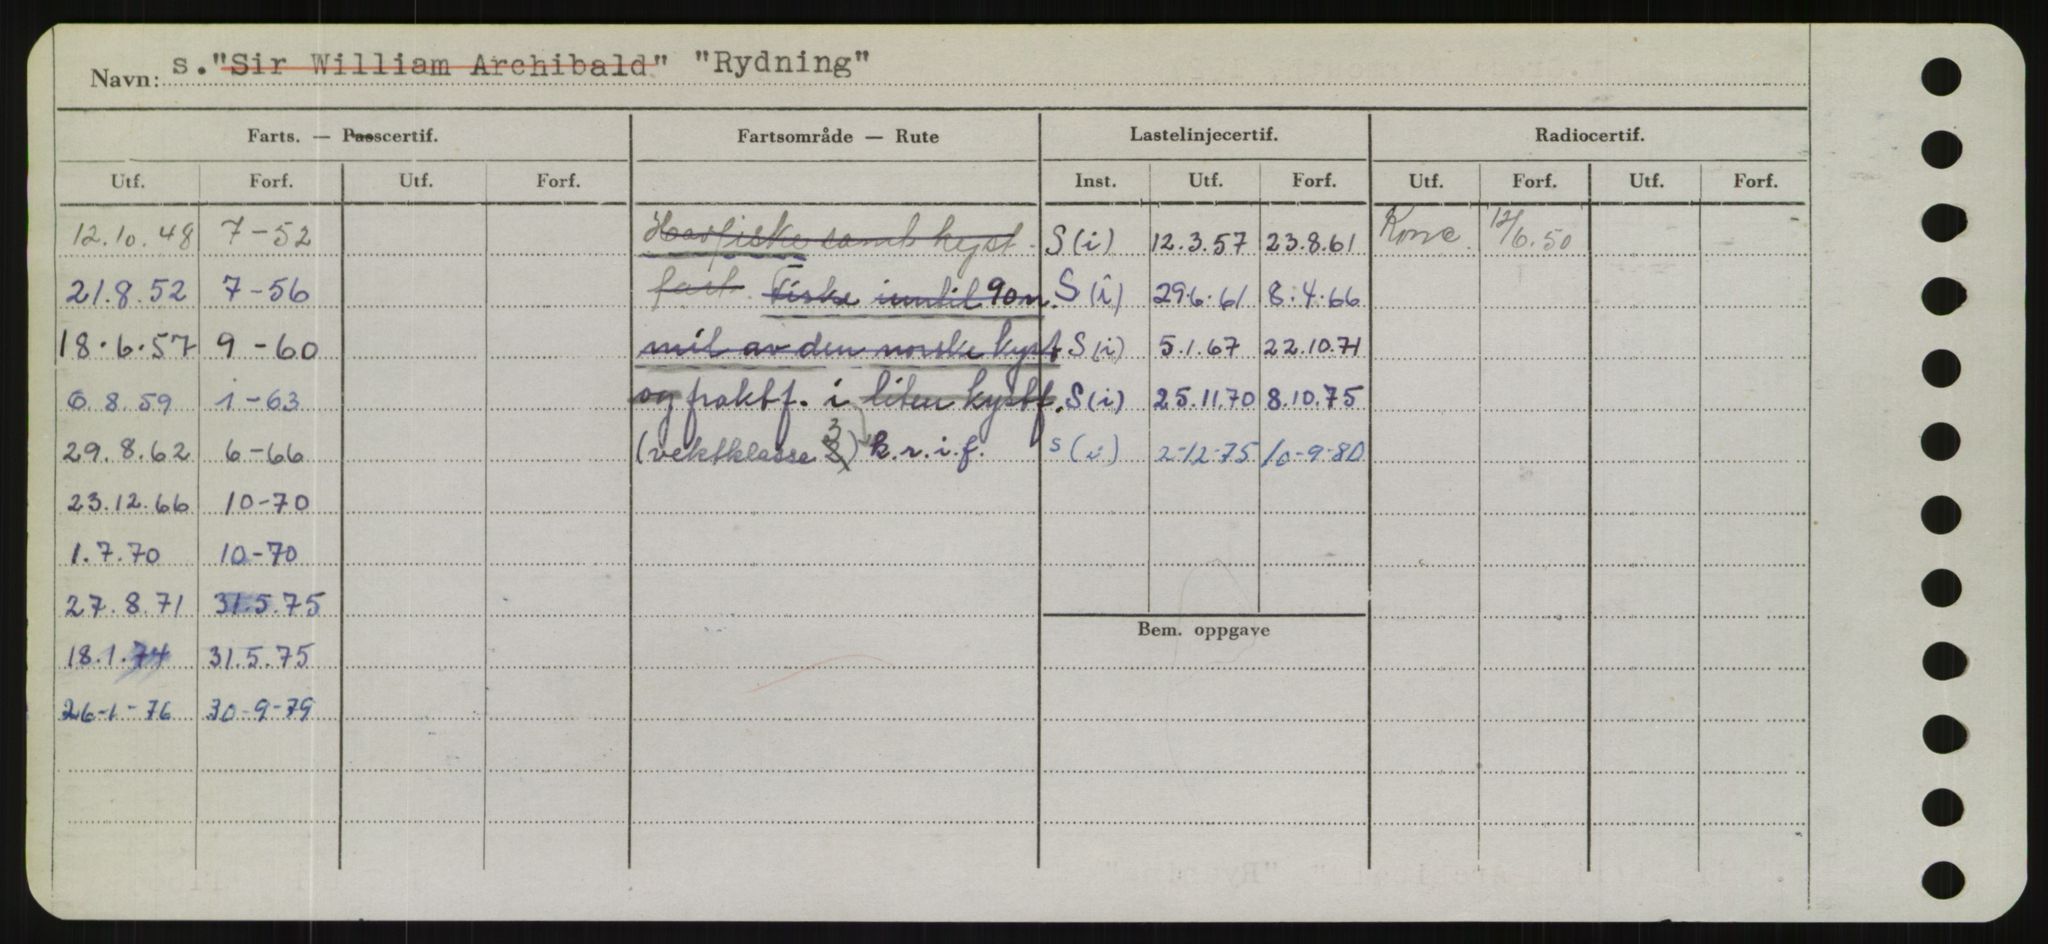 Navn: s. "Sir William Archibald" "Rydning"
Farts. — Passcertif. Fartsområde — Rute Lastelinjecertif. Radiocertif.
Utf. Forf. Utf. Forf. Inst. Utf. Forf. Utf. Forf. Utf. Forf.
12.10.48 7-52 Havfiske samt kyst- S(i) 12.3.57 23.8.61 12/6.50
21.8.52 7-56 fart. Fiske inntil 90 n. S(i) 29.6.61 8.4.66
18.6.57 9-60 mil av den norske kyst S(i) 5.1.67 22.10.71
6.8.59 1-63 og fraktf. i liten kystf. S(i) 25.11.70 8.10.75
29.8.62 6-66 (vektklasse 3) k.r.i.f. s(i) 2-12-75 10-9-80
23.12.66 10-70
1.7.70 10-70
27.8.71 31.5.75
Bem. oppgave
18.1.74 31.5.75
26-1-76 30-9-79